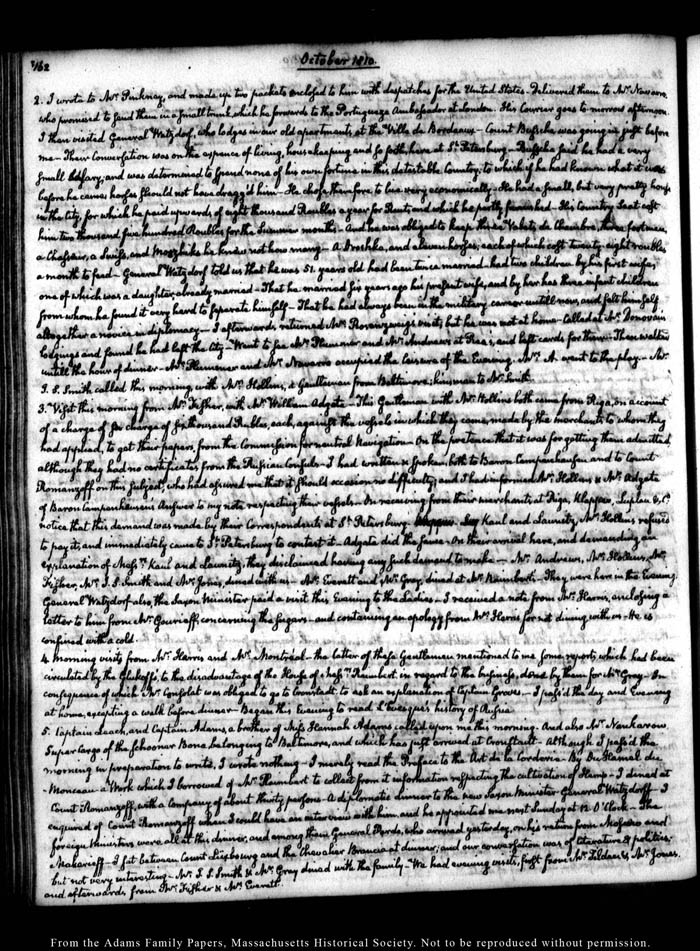 162
October 1810.
2. I wrote to Mr Pinkney, and made up two packets enclosed to him with despatches for the United States. Delivered them to Mr Navarro,
who promised to send them in a small trunk, which he forwards to the Portuguese Ambassador at London. His Courier goes to morrow afternoon.
I then visited General Watzdorf, who lodges in our old apartments, at the Ville de Bordeaux — Count Bussche was going in just before
me — Their Conversation was on the expence of living, housekeeping and so forth, here at St Petersburg — Bussche said he had a very
small salary, and was determined to spend none of his own fortune in this detestable Country, to which if he had known what it was
before he came, horses should not have dragg'd him — He chose therefore to live very economically — He had a small, but very pretty house
in the City, for which he paid upwards of eight thousand Roubles a year for Rent, and which he partly furnished — His Country Seat cost
him two thousand five hundred Roubles for the Summer months — And he was obliged to keep three Valets de Chambre, three footmen,
a Chasseur, a Suisse, and Mouzhiks he knew not how many — A Droshka, and eleven horses, each of which cost twenty-eight roubles
a month to feed — General Watzdorf told us that he was 51. years old had been twice married. had two children by his first wife,
one of which was a daughter, already married — That he married six years ago his present wife, and by her has three infant children
from whom he found it very hard to separate himself — That he had always been in the military career untill now, and felt himself
altogether a novice in diplomacy — I afterwards returned Mr Rosenzweig's visit, but he was not at home. Called at Mr Donovan's
lodgings and found he had left the City — Went to see Mr Plummer and Mr Andrews at Reas's, and left cards for them — Then walked
untill the hour of dinner — Mr Plummer and Mr Navarro occupied the leisure of the Evening. Mrs A. went to the play — Mr
J. S. Smith called this morning with Mr Hollins, a Gentleman from Baltimore; kinsman to Mr Smith.
3. Visit this morning from Mr Fisher, with Mr William Adgate — This Gentleman with Mr Hollins both came from Riga, on account
of a charge of six thousand Rubles, each, against the vessels in which they came, made by the merchants to whom they
had applied, to get their papers, from the Commission for neutral Navigation — On the pretence that it was for getting them admitted
although they had no certificates from the Russian Consuls — I had written & spoken, both to Baron Campenhausen and to Count
Romanzoff on this subject, who had assured me that it should occasion no difficulty, and I had informed Mr Hollins & Mr Adgate
of Baron Campenhausen's Answer to my note respecting their vessels — On receiving from their merchants at Riga, & Co
notice that this demand was made by their Correspondents at St Petersburg. Kaul and Launitz, Mr Hollins refused
to pay it, and immediately came to St Petersburg to contest it. Adgate did the same. On their arrival here, and demanding an
explanation of Messrs Kaul and Launitz, they disclaimed having any such demand to make — Mr Andrews, Mr Hollins, Mr
Fisher, Mr J. S. Smith and Mr Jones, dined with us — Mr Everett and Mr Gray, dined at Mr Raimbert's — They were here in the Evening.
General Watzdorf also, the Saxon Minister paid a visit this Evening to the Ladies — I received a note from Mr Harris, enclosing a
letter to him from Mr Gourieff, concerning the sugars — and containing an apology from Mr Harris for not dining with us. He is
confined with a cold.
4. Morning visits from Mr Harris and Mr Montréal — the latter of these Gentlemen mentioned to me some reports which had been
circulated by the to the disadvantage of the House of Messrs Raimbert in regard to the business, done by them for Mr Gray — In
consequence of which Mr Confolat was obliged to go to Cronstadt, to ask an explanation of Captain Graves — I pass'd the day and Evening
at home, excepting a walk before dinner — Began this Evening to read L'Evesque's history of Russia.
5. Captain Leach, and Captain Adams, a brother of Miss Hannah Adams called upon me this morning. And also Mr Nankarrow,
Super Cargo of the schooner Bona belonging to Baltimore, and which has just arrived at Cronstadt — Although I pass'd the
morning in preparation to write, I wrote nothing — I merely read the Preface to the Art de la Corderie — By Du Hamel du
Monceau — a Work which I borrowed of Mr Raimbert to collect from it information respecting the cultivation of Hemp — I dined at
Count Romanzoff's, with a Company of about thirty persons — A diplomatic dinner to the new Saxon Minister General Watzdorff — I
enquired of Count Romanzoff when I could have an interview with him. and he appointed me next Sunday at 12. O'Clock — The
foreign Ministers were all at this dinner, and among them General Pardo, who arrived yesterday, on his return from Moscow and
Makarieff — I sat between Count Luxbourg and the Chevalier Brancia at dinner; and our conversation was of literature & politics;
but not very interesting — Mr J. S. Smith & Mr Gray dined with the family — We had evening visits, first from Mr Fisher & Mr Jones,
and afterwards, from Mr Fisher & Mr Everett.
From the Adams Family Papers, Massachusetts Historical Society. Not to be reproduced without permission.